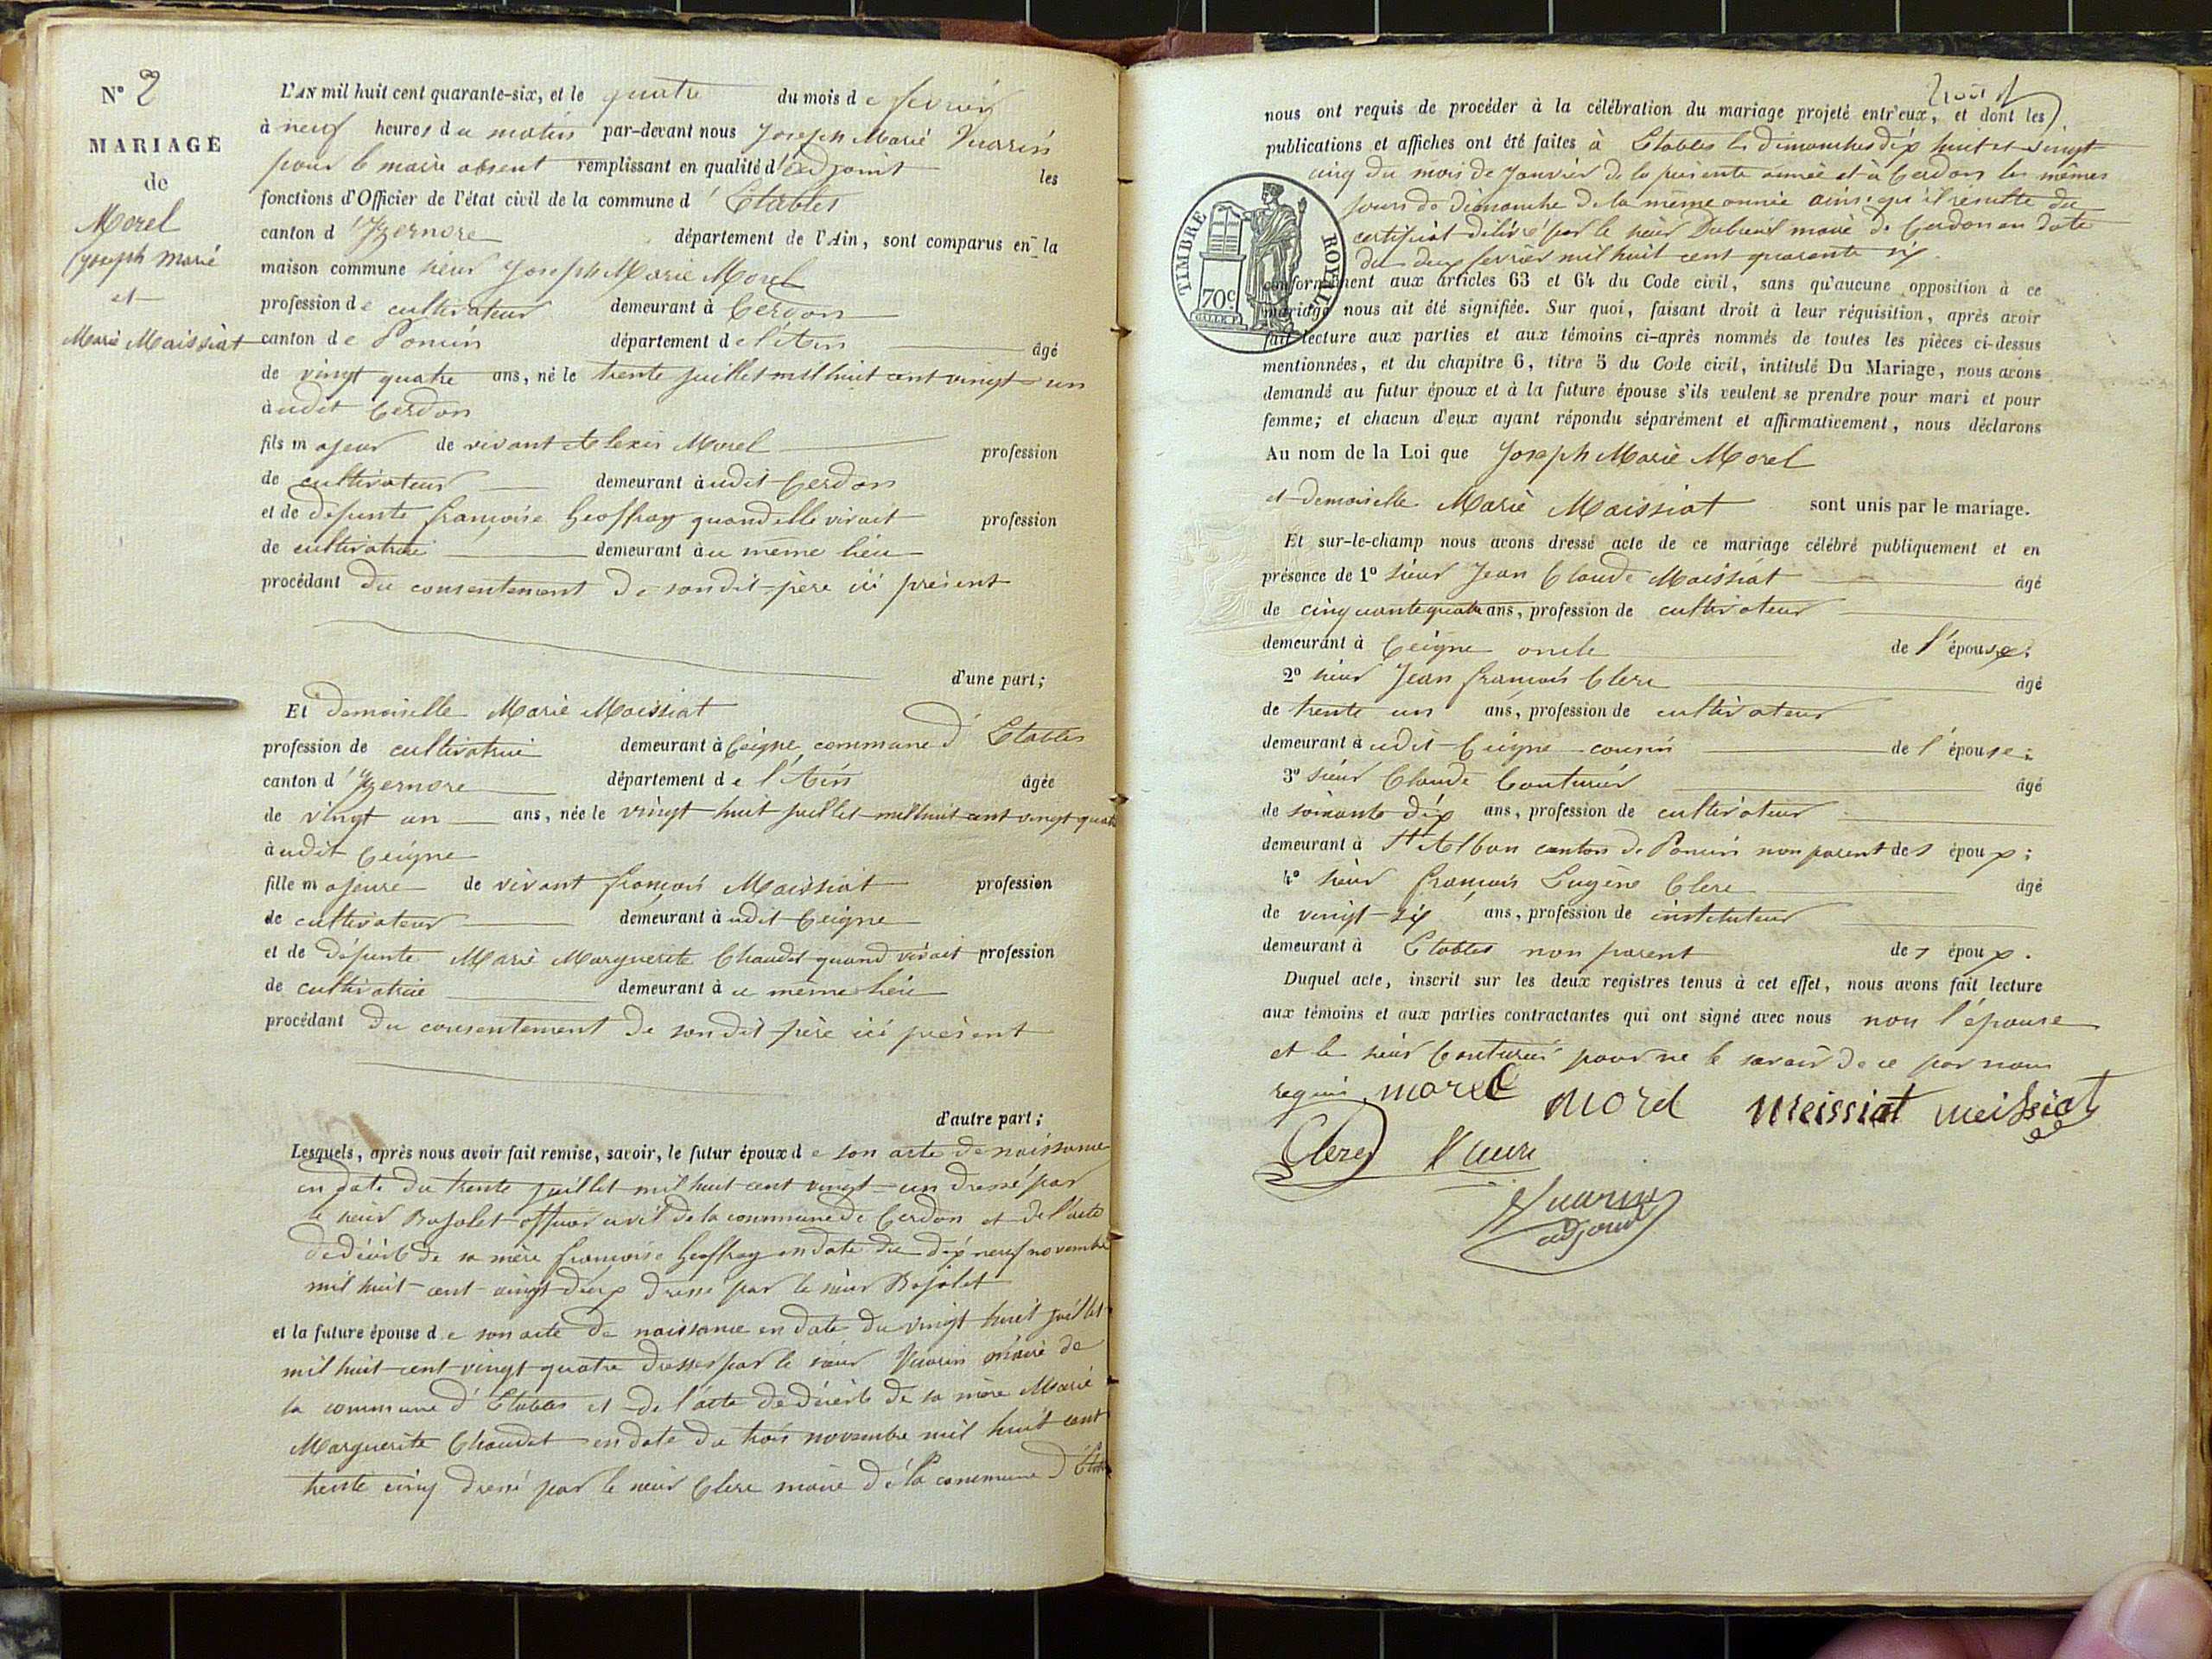 N° 2
MARIAGE
de
Morel
Joseph Marie
et
Marie Maissiat
L'AN mil huit cent quarante-six, et le quatre du mois de fevrier
à neuf heures du matin par-devant nous Joseph Marie Vuarin
pour le maire absent remplissant en qualité d'adjoint les
fonctions d'Officier de l'état civil de la commune d'Etables
canton d'Izernore département de l'Ain, sont comparus en la
maison commune sieur Joseph Marie Morel
profession de cultivateur demeurant à Cerdon
canton de Poncin département de l'Ain âgé
de vingt quatre ans, né le trente juillet mil huit cent vingt-un
audit Cerdon
fils majeur de vivant Alexis Morel profession
de cultivateur demeurant audit Cerdon
et de défunte françoise Geoffray quand elle vivait profession
de cultivatrice demeurant au même lieu
procédant du consentement de sondit père ici présent
d'une part;
Et demoiselle Marie Maissiat
profession de cultivatrice demeurant à Ceigne commune d'Etables
canton d'Izernore département de l'Ain âgée
de vingt un ans, née le vingt huit juillet mil huit cent vingt quatre
audit Ceigne
fille majeure de vivant françois Maissiat profession
de cultivateur demeurant audit Ceigne
et de défunte Marie Marguerite Chaudet quand vivait profession
de cultivatrice demeurant au même lieu
procédant du consentement de sondit père ici présent
d'autre part;
Lesquels, après nous avoir fait remise, savoir, le futur époux de son acte de naissance
en date du trente juillet mil huit cent vingt-un dressé par
le sieur Bojolet officier civil de la commune de Cerdon et de l'acte
de décès de sa mère françoise Geoffray en date du dix neuf novembre
mil huit cent vingt deux dressé par le sieur Bojolet
et la future épouse de son acte de naissance en date du vingt huit juillet
mil huit cent vingt quatre dressé par le sieur Vuarin maire de
la commune d'Etables et de l'acte de décès de sa mère Marie
Marguerite Chaudet en date du trois novembre mil huit cent
trente cinq dressé par le sieur Clerc maire de la commune d'
nous ont requis de procéder à la célébration du mariage projeté entr'eux, et dont les
publications et affiches ont été faites à Etables les dimanches dix huit et vingt
cinq du mois de Janvier de la présente année et à Cerdon les mêmes
jours de dimanche de la même année ainsi qu'il résulte du
certificat délivré par le sieur Dubreuil maire de Cerdon en date
du deux fevrier mil huit cent quarante six
TIMBRE ROYAL
70c
conformément aux articles 63 et 64 du Code civil, sans qu'aucune opposition à ce
mariage nous ait été signifiée. Sur quoi, faisant droit à leur réquisition, après avoir
fait lecture aux parties et aux témoins ci-après nommés de toutes les pièces ci-dessus
mentionnées, et du chapitre 6, titre 5 du Code civil, intitulé Du Mariage, nous avons
demandé au futur époux et à la future épouse s'ils veulent se prendre pour mari et pour
femme; et chacun d'eux ayant répondu séparément et affirmativement, nous déclarons
Au nom de la Loi que Joseph Marie Morel
et demoiselle Marie Maissiat sont unis par le mariage.
Et sur-le-champ nous avons dressé acte de ce mariage célébré publiquement et en
présence de 1° sieur Jean Claude Maissiat âgé
de cinquante quatre ans, profession de cultivateur
demeurant à Ceigne oncle de l'épouse;
2° sieur Jean françois Clerc âgé
de trente un ans, profession de cultivateur
demeurant audit Ceigne cousin de l'épouse;
3° sieur Claude Couturier âgé
de soixante dix ans, profession de cultivateur
demeurant à St Alban canton de Poncin non parent des époux;
4° sieur françois Eugène Clerc âgé
de vingt-six ans, profession de instituteur
demeurant à Etables non parent des époux.
Duquel acte, inscrit sur les deux registres tenus à cet effet, nous avons fait lecture
aux témoins et aux parties contractantes qui ont signé avec nous non l'épouse
et le sieur Couturier pour ne le savoir de ce par nous
requis. morel morel meissiat meissiat
Clerc
Vuarin
adjoint